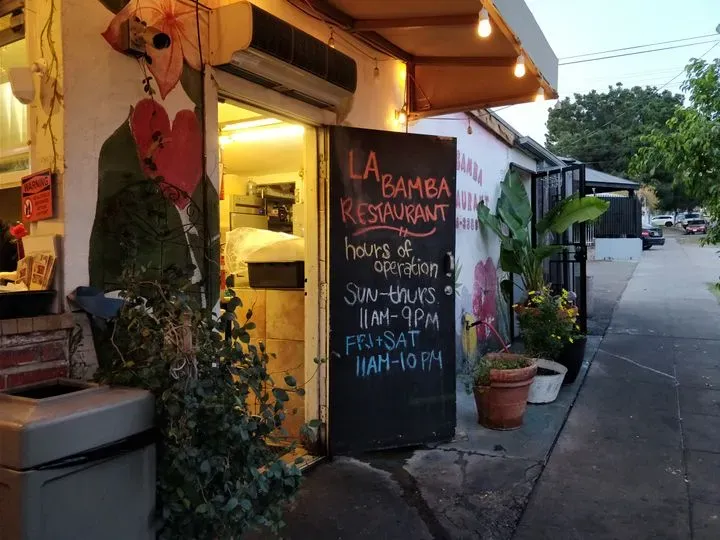 WARNING
LA
BAMBA
RESTAURANT
hours of
operation
SUN-thurs.
11AM-9PM
FRI+SAT
11AM-10PM
BAMBA